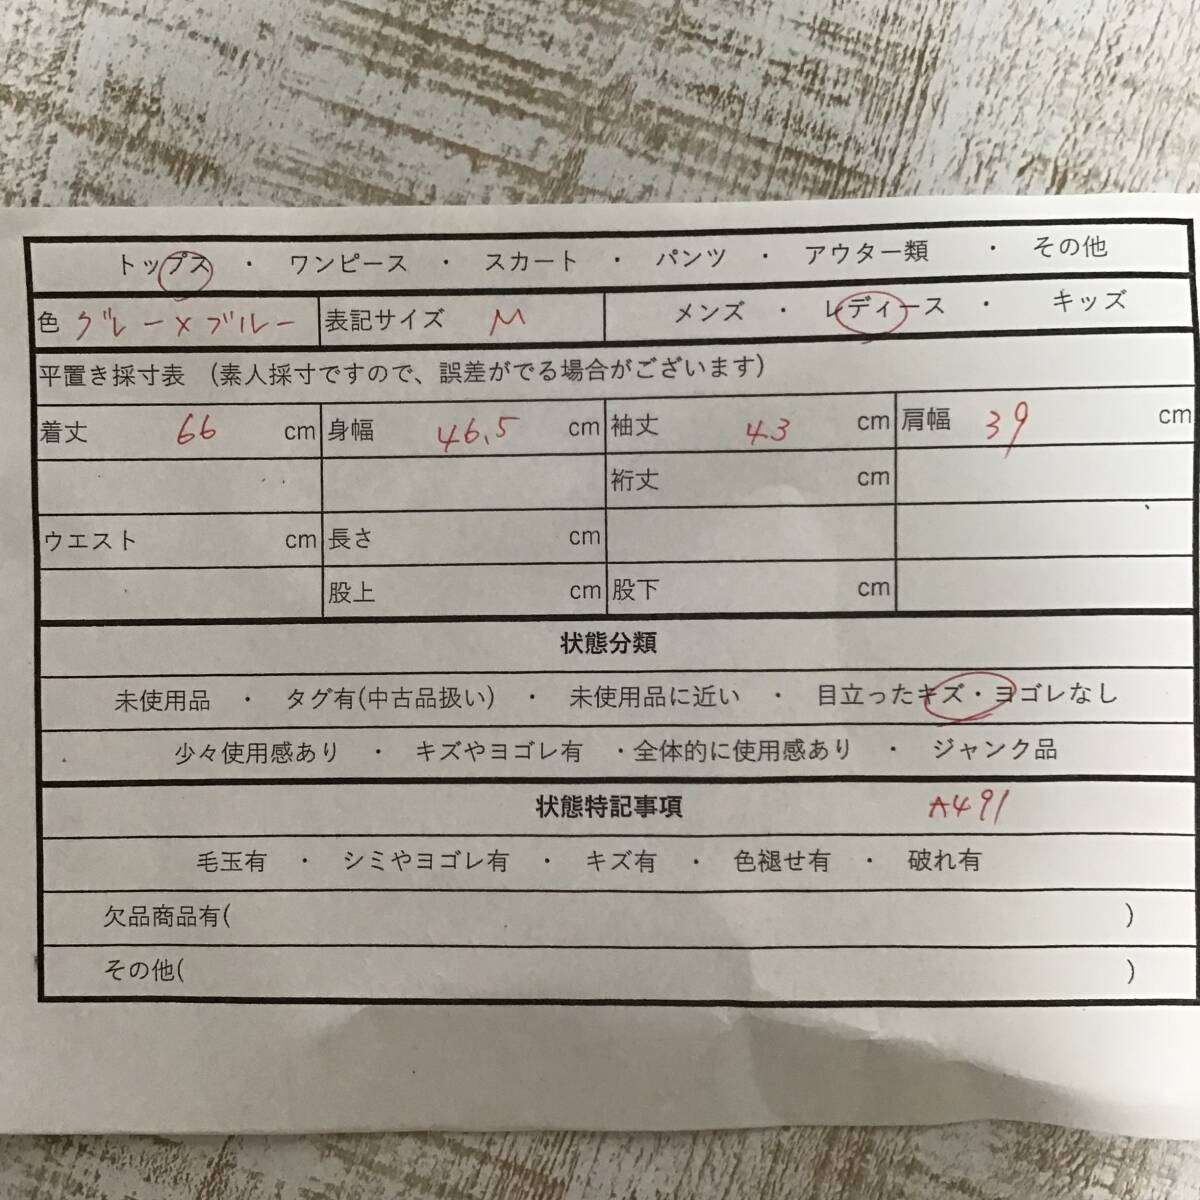 トップス ・ ワンピース ・ スカート ・ パンツ ・ アウター類 ・ その他
色 グレー×ブルー 表記サイズ M メンズ ・ レディース ・ キッズ
平置き採寸表 (素人採寸ですので、誤差がでる場合がございます)
着丈 66 cm 身幅 46.5 cm 袖丈 43 cm 肩幅 39 cm
裄丈 cm
ウエスト cm 長さ cm
股上 cm 股下 cm
状態分類
未使用品 ・ タグ有(中古品扱い) ・ 未使用品に近い ・ 目立ったキズ・ヨゴレなし
少々使用感あり ・ キズやヨゴレ有 ・全体的に使用感あり ・ ジャンク品
状態特記事項 A491
毛玉有 ・ シミやヨゴレ有 ・ キズ有 ・ 色褪せ有 ・ 破れ有
欠品商品有( )
その他( )